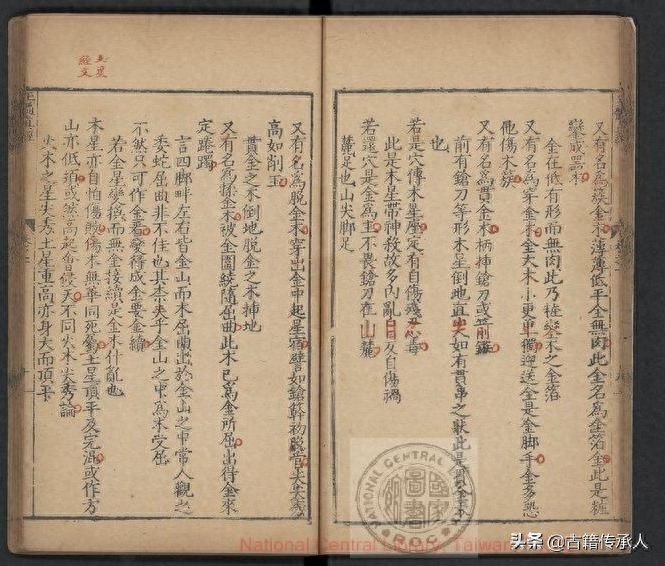 又有名爲簇金木薄薄低平全無肉此金名爲金箔金此是粧
欒成器木
金在低有形而無肉此乃粧欒木之金箔
又有名爲穿金木金大木小更單獨迎送全是金脚手金多恐
他傷木簇
又有名爲貫金木柄挿鎗刀或箭鏃
前有鎗刀等形木星倒地直如有貫串之狀此是貫金木
也
若是穴傳木星座定有自傷殘忍毒
此是木星帶神殺故多內亂自及自傷禍
若還穴是金爲主不畏鎗刀在山麓
麓足也山尖脚足
又有名爲脫金木穿出金中起星宿譬如鎗幹初脫尖尖或
高如削玉
貫金之木倒地脫金之木挿地
又有名爲揉金木被金圍繞隨屈曲此木已爲金所屈出得金來
定踡躅
言四脚畔左右皆金山而木屈蘭出於金山之中常人觀之
委蛇屈曲非不佳也其柰夾乎金山之中爲木受屈
不然只可作金看變得成金要金續
若金星變換而無金接續是金木什亂也
木星亦自怕傷殘傷木無華同死劉土星頂平及完混或作方
山亦低鎖或然高起會侵天不同火木尖秀論
火木之星尖秀土星重高亦身大而頂平
土星
經文
卷之二
NATIONAL CENTRAL
R.O.C
國家圖書館
National Central Library, Taiwan
头条 @古籍传承人